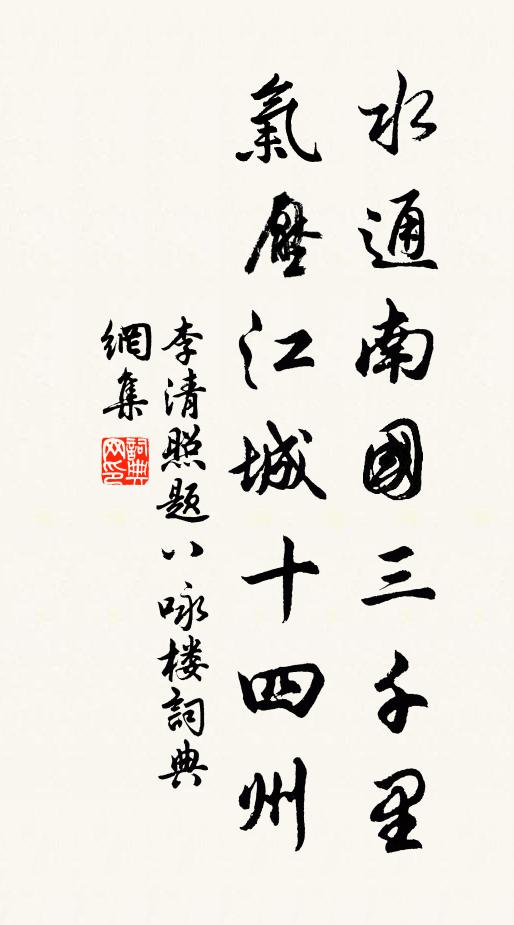 水通南國三千里
氣壓江城十四州
李清照題八咏楼詞典
網集
詞典
网印